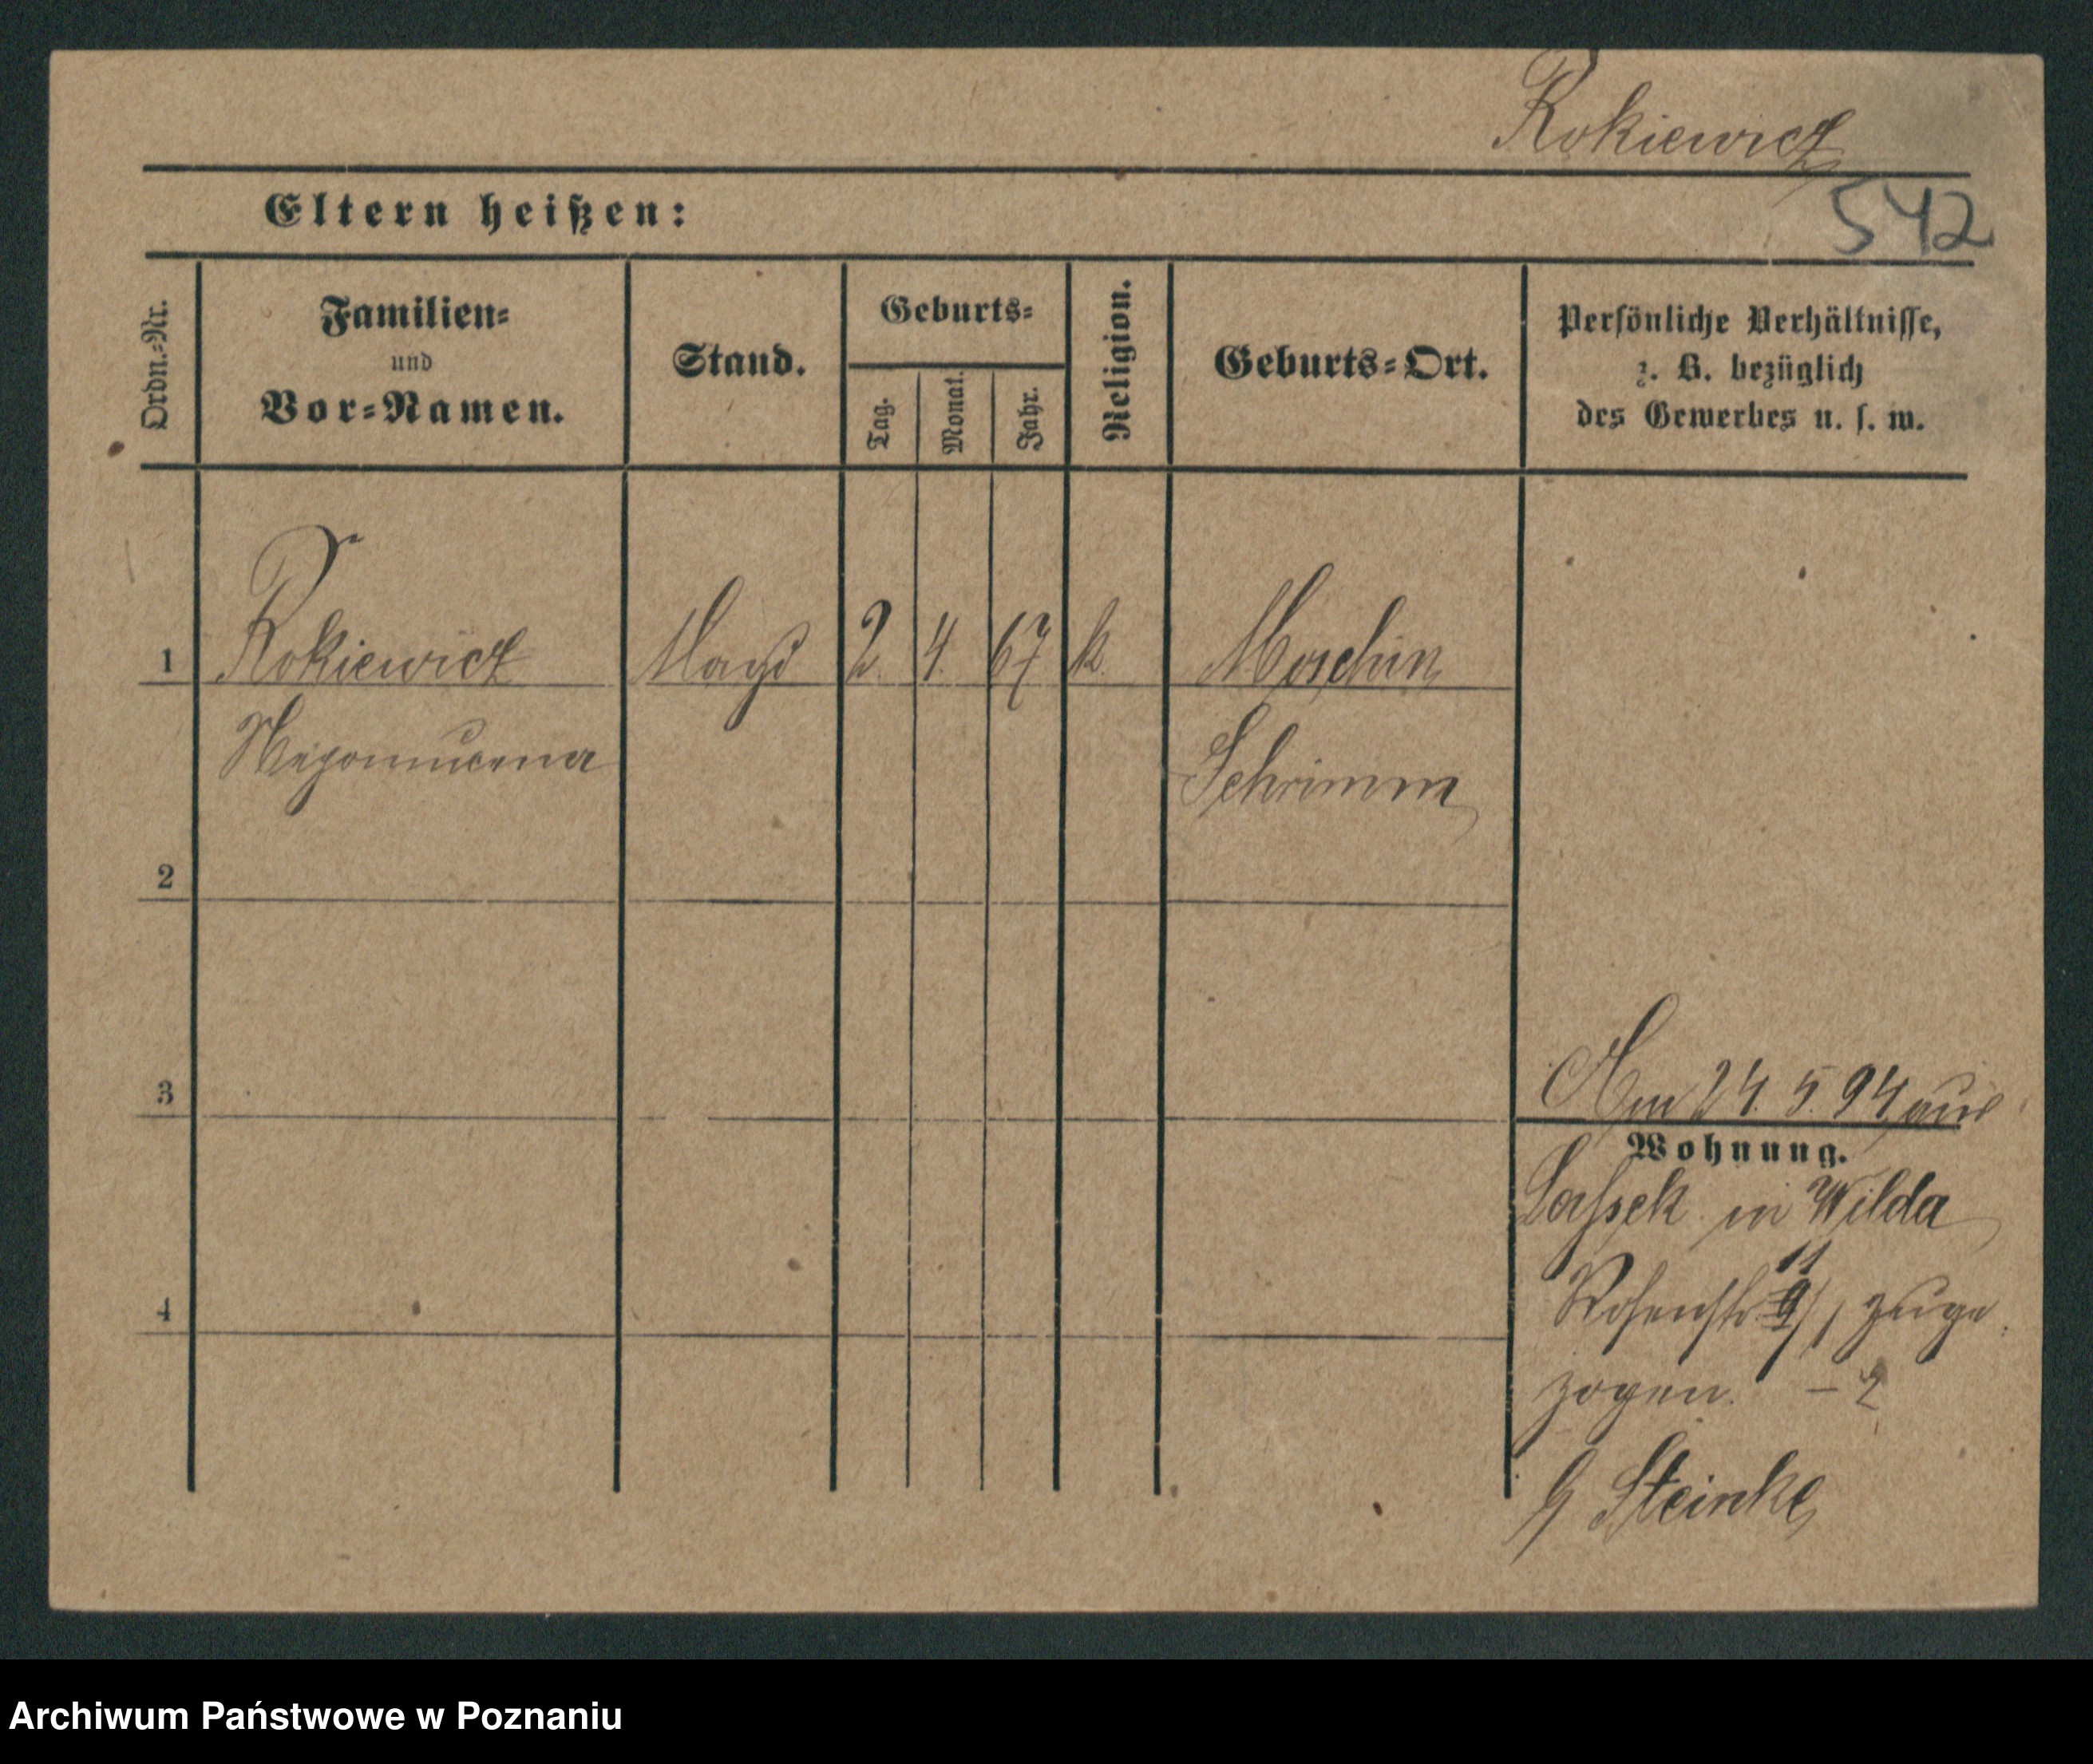 Rokiewicz
Eltern heißen:
542
Ordn.-Nr.
Familien-
und
Vor-Namen.
Stand.
Geburts-
Tag.
Monat.
Jahr.
Religion.
Geburts-Ort.
Persönliche Verhältnisse,
z. B. bezüglich
des Gewerbes u. s. w.
1 Rokiewicz Magd 2. 4. 67 k. Moschin
Nepomucena Schrimm
2
3
Am 24. 5. 94 aus
Wohnung.
Lassek in Wilda
11
Rosenstr. 9/, zuge
4
zogen. – 2
G Steinke
Archiwum Państwowe w Poznaniu